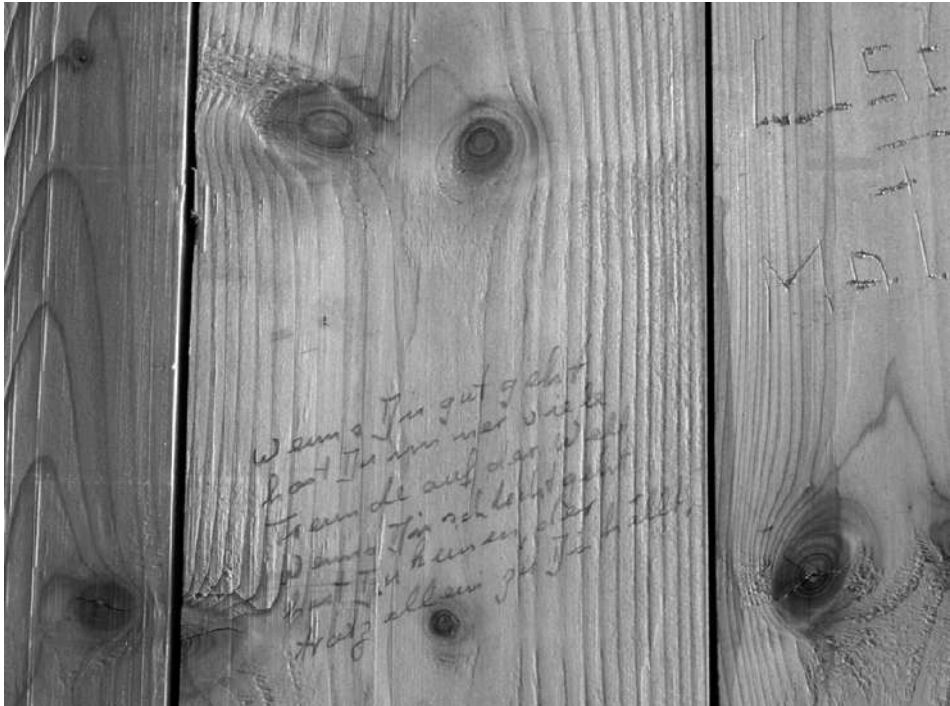 wenns Dir gut geht
hast Du immer viele
Freunde auf der Welt
Wenns Dir schlecht geht
hast Du keinen, der
trotz allem zu Dir hällt,
+